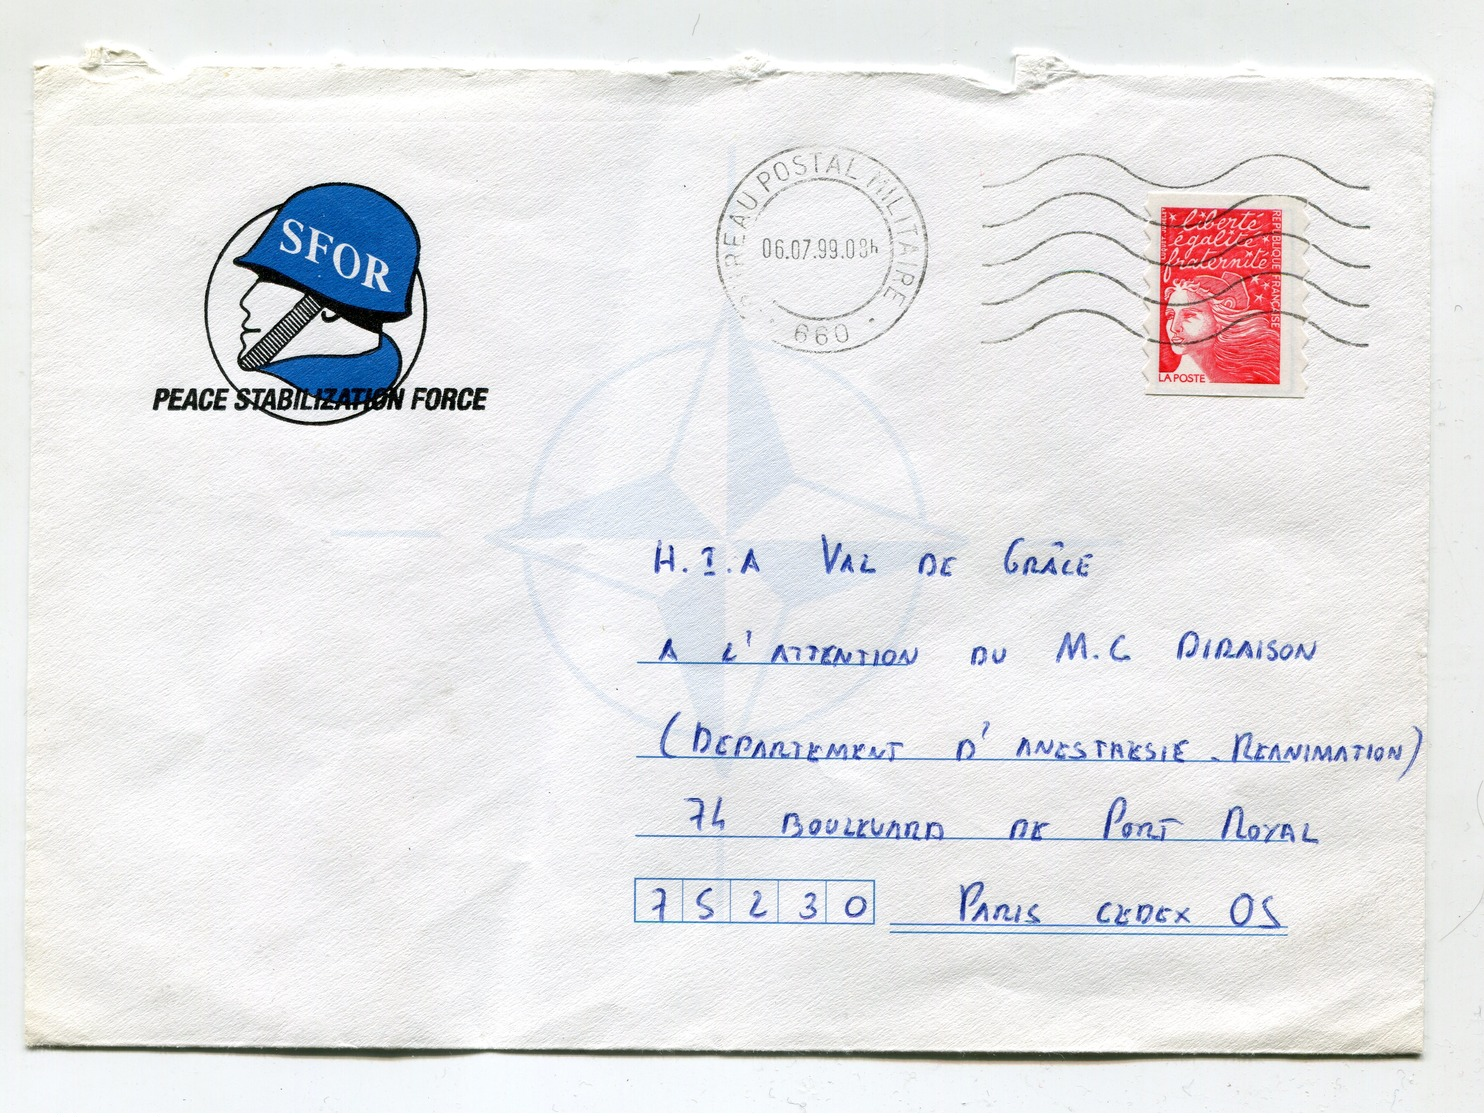 SFOR
PEACE STABILIZATION FORCE
BUREAU POSTAL MILITAIRE
06.07.99.08h
660
liberté
égalité
fraternité
RÉPUBLIQUE FRANÇAISE
LA POSTE
H.I.A VAL DE GRÂCE
A L'ATTENTION DU M.C DIRAISON
(DEPARTEMENT D'ANESTHESIE - REANIMATION)
74 BOULEVARD DE PORT ROYAL
75230 PARIS CEDEX 05